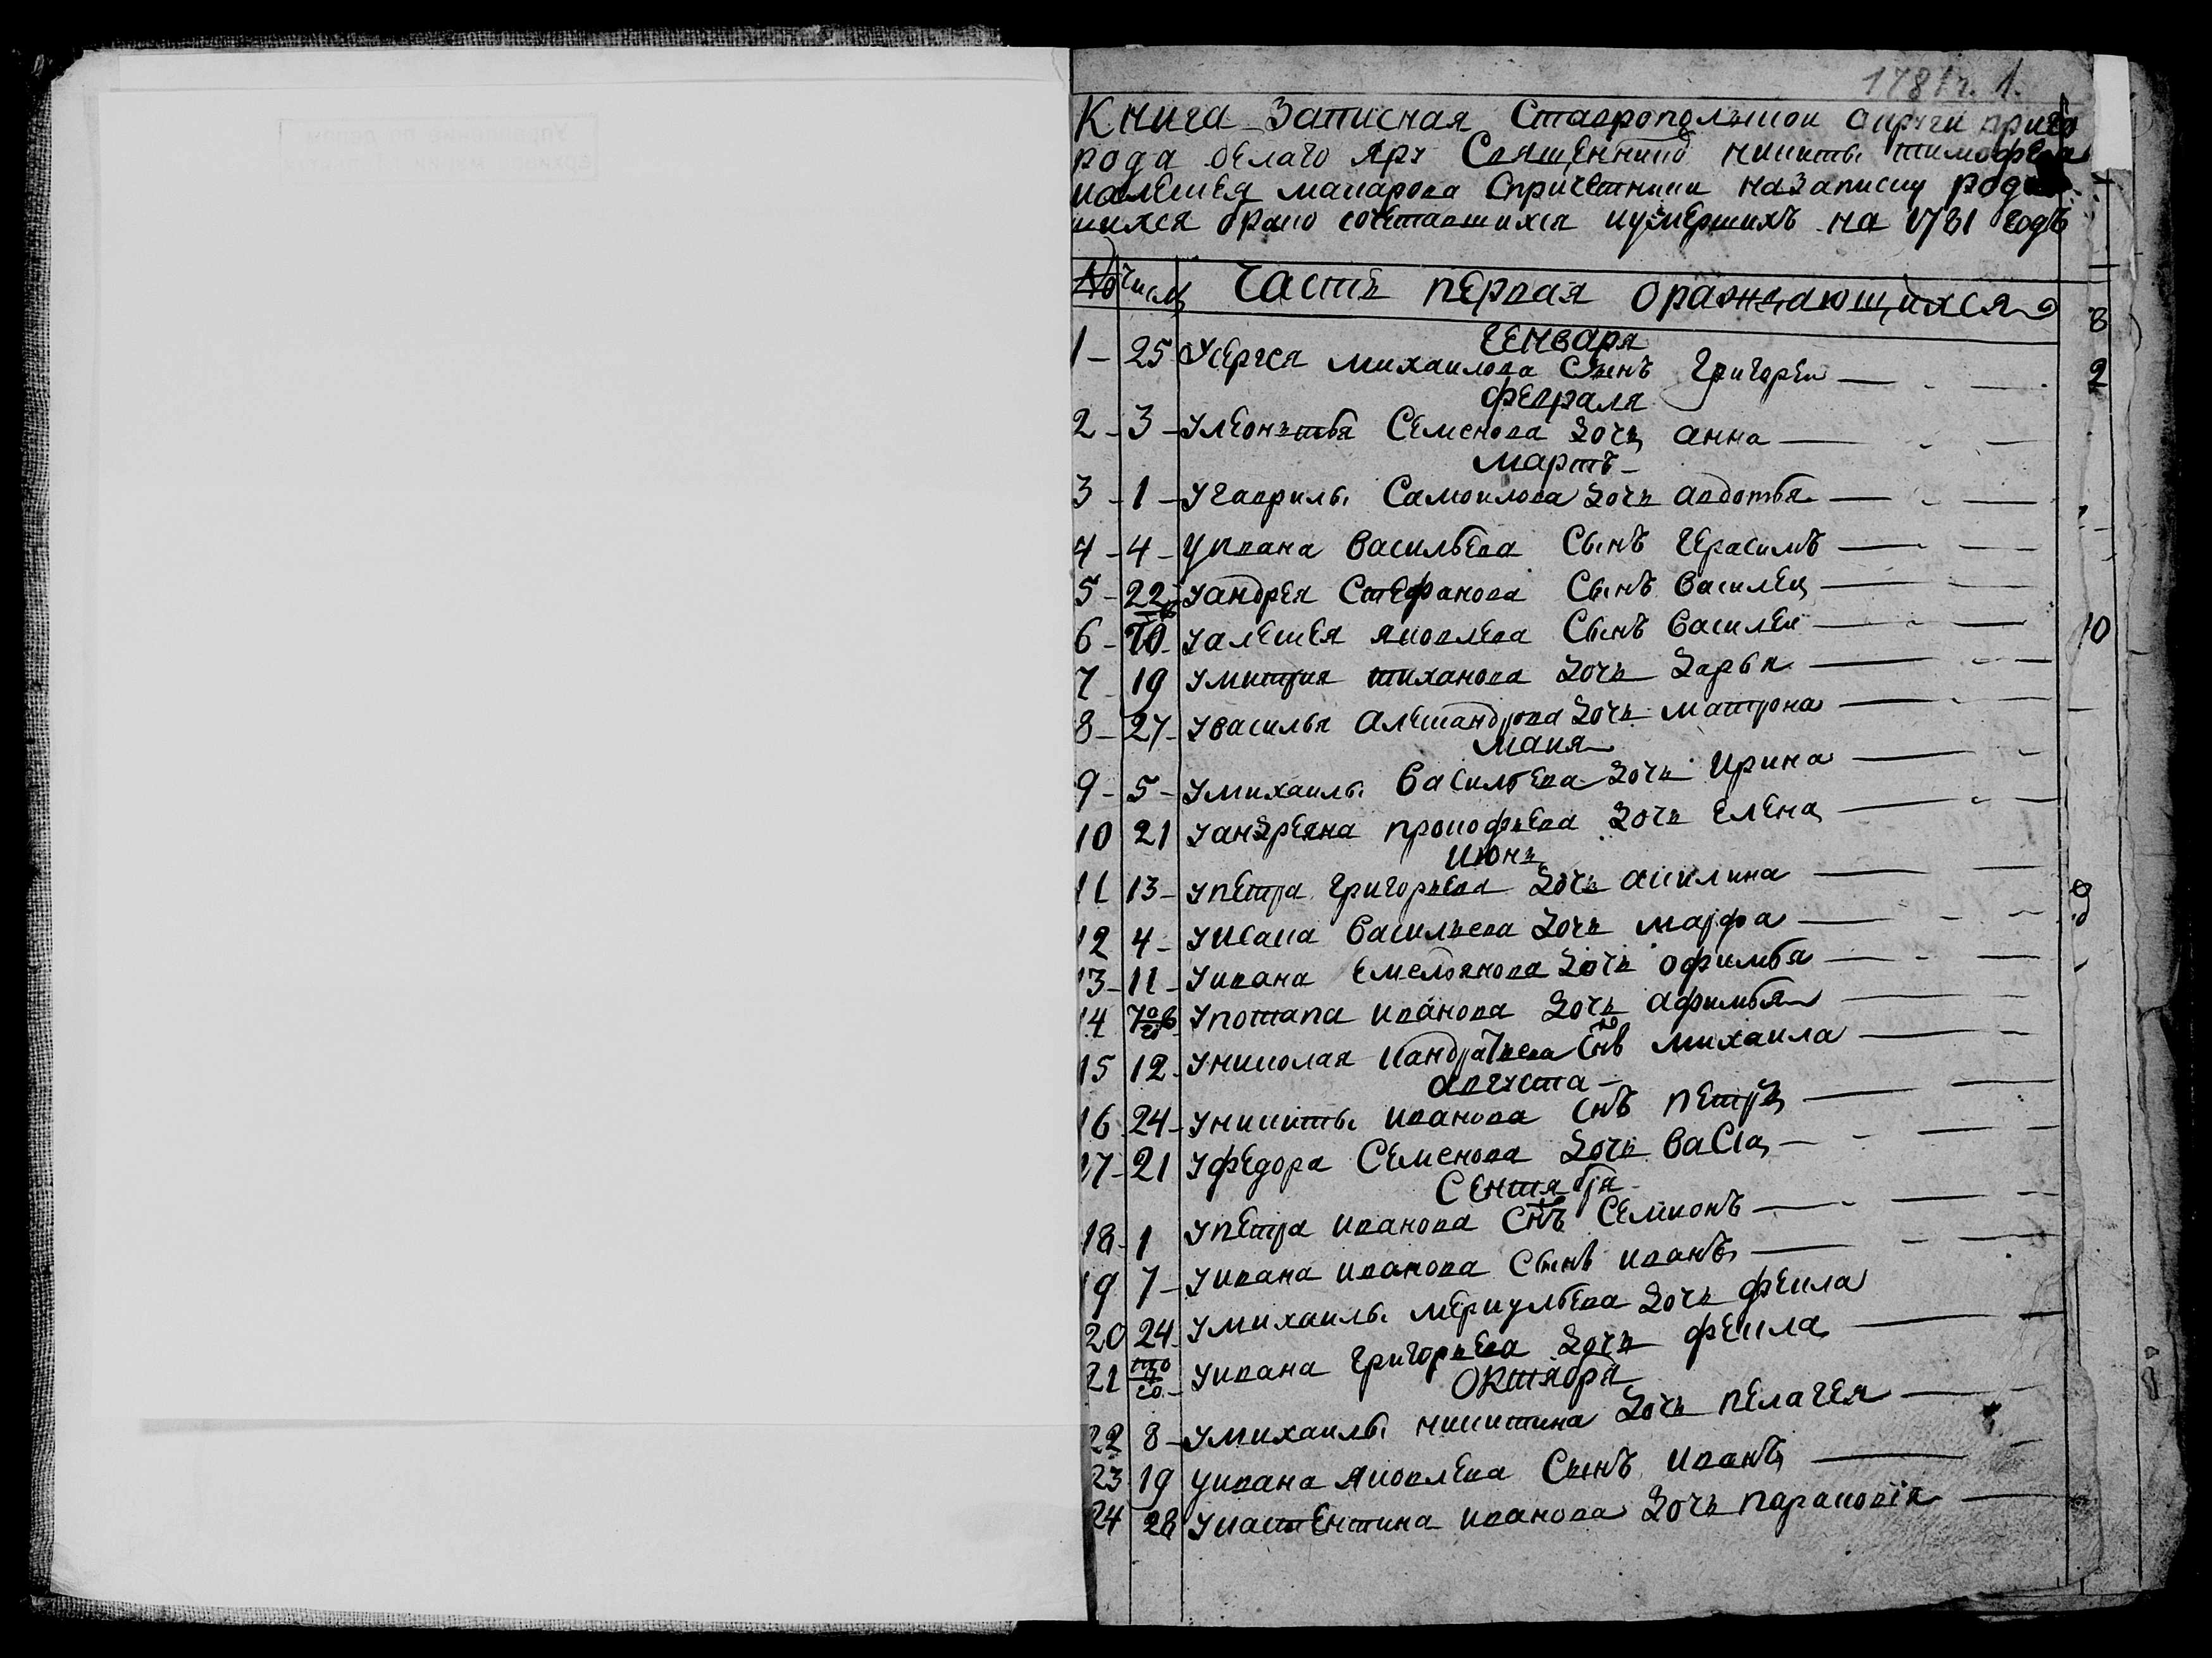 1781 г. 1.
Книга Записная Ставропольской округи приго
рода белаго яру Священников никиты тимофеева
иалексея макарова Спричетники назаписку родив
шихся брако сочетавшихся иумерших на 1781 годъ
№ Числ Часть первая ораждающихся
Генваря
1 - 25 Усергея михаилова Сынъ Григореи
февраля
2 - 3 - Улеонтья Семенова дочь анна
мартъ
3 - 1 - Угаврилы Самоилова дочь авдотья
4 - 4 - Уивана васильева Сынъ Герасимъ
5 - 22 - Уандрея Стефанова Сынъ василеи
6 - 10 - Уалексея яковлева Сынъ василеи
7 19 Умитрия тиханова дочь дарья
8 - 27 - Увасилья александрова дочь матрона
маия
9 - 5 - Умихаилы васильева дочь ирина
10 21 Уандреяна прокофьева дочь елена
июнь
11 13 - Упетра григорьева дочь акилина
12 4 - Уисака васильева дочь марфа
13 - 11 - Уивана емельянова дочь офимья
14 Употапа иванова дочь афимья
15 12 - Униколая кандратьева Снъ михаила
августа
16 24 - Уникиты иванова Снъ петръ
17 - 21 Уфедора Семенова дочь васса
Сентября
18 - 1 Упетра иванова Снъ Семионъ
19 7 - Уивана иванова Сынъ иванъ
20 24 - Умихаилы меркульева дочь фекла
21 Уивана григорьева дочь фекла
Октября
22 8 - Умихаилы никитина дочь пелагея
23 19 Уивана яковлева Сынъ иванъ
24 28 Укастентина иванова дочь парасковія
8
2
10